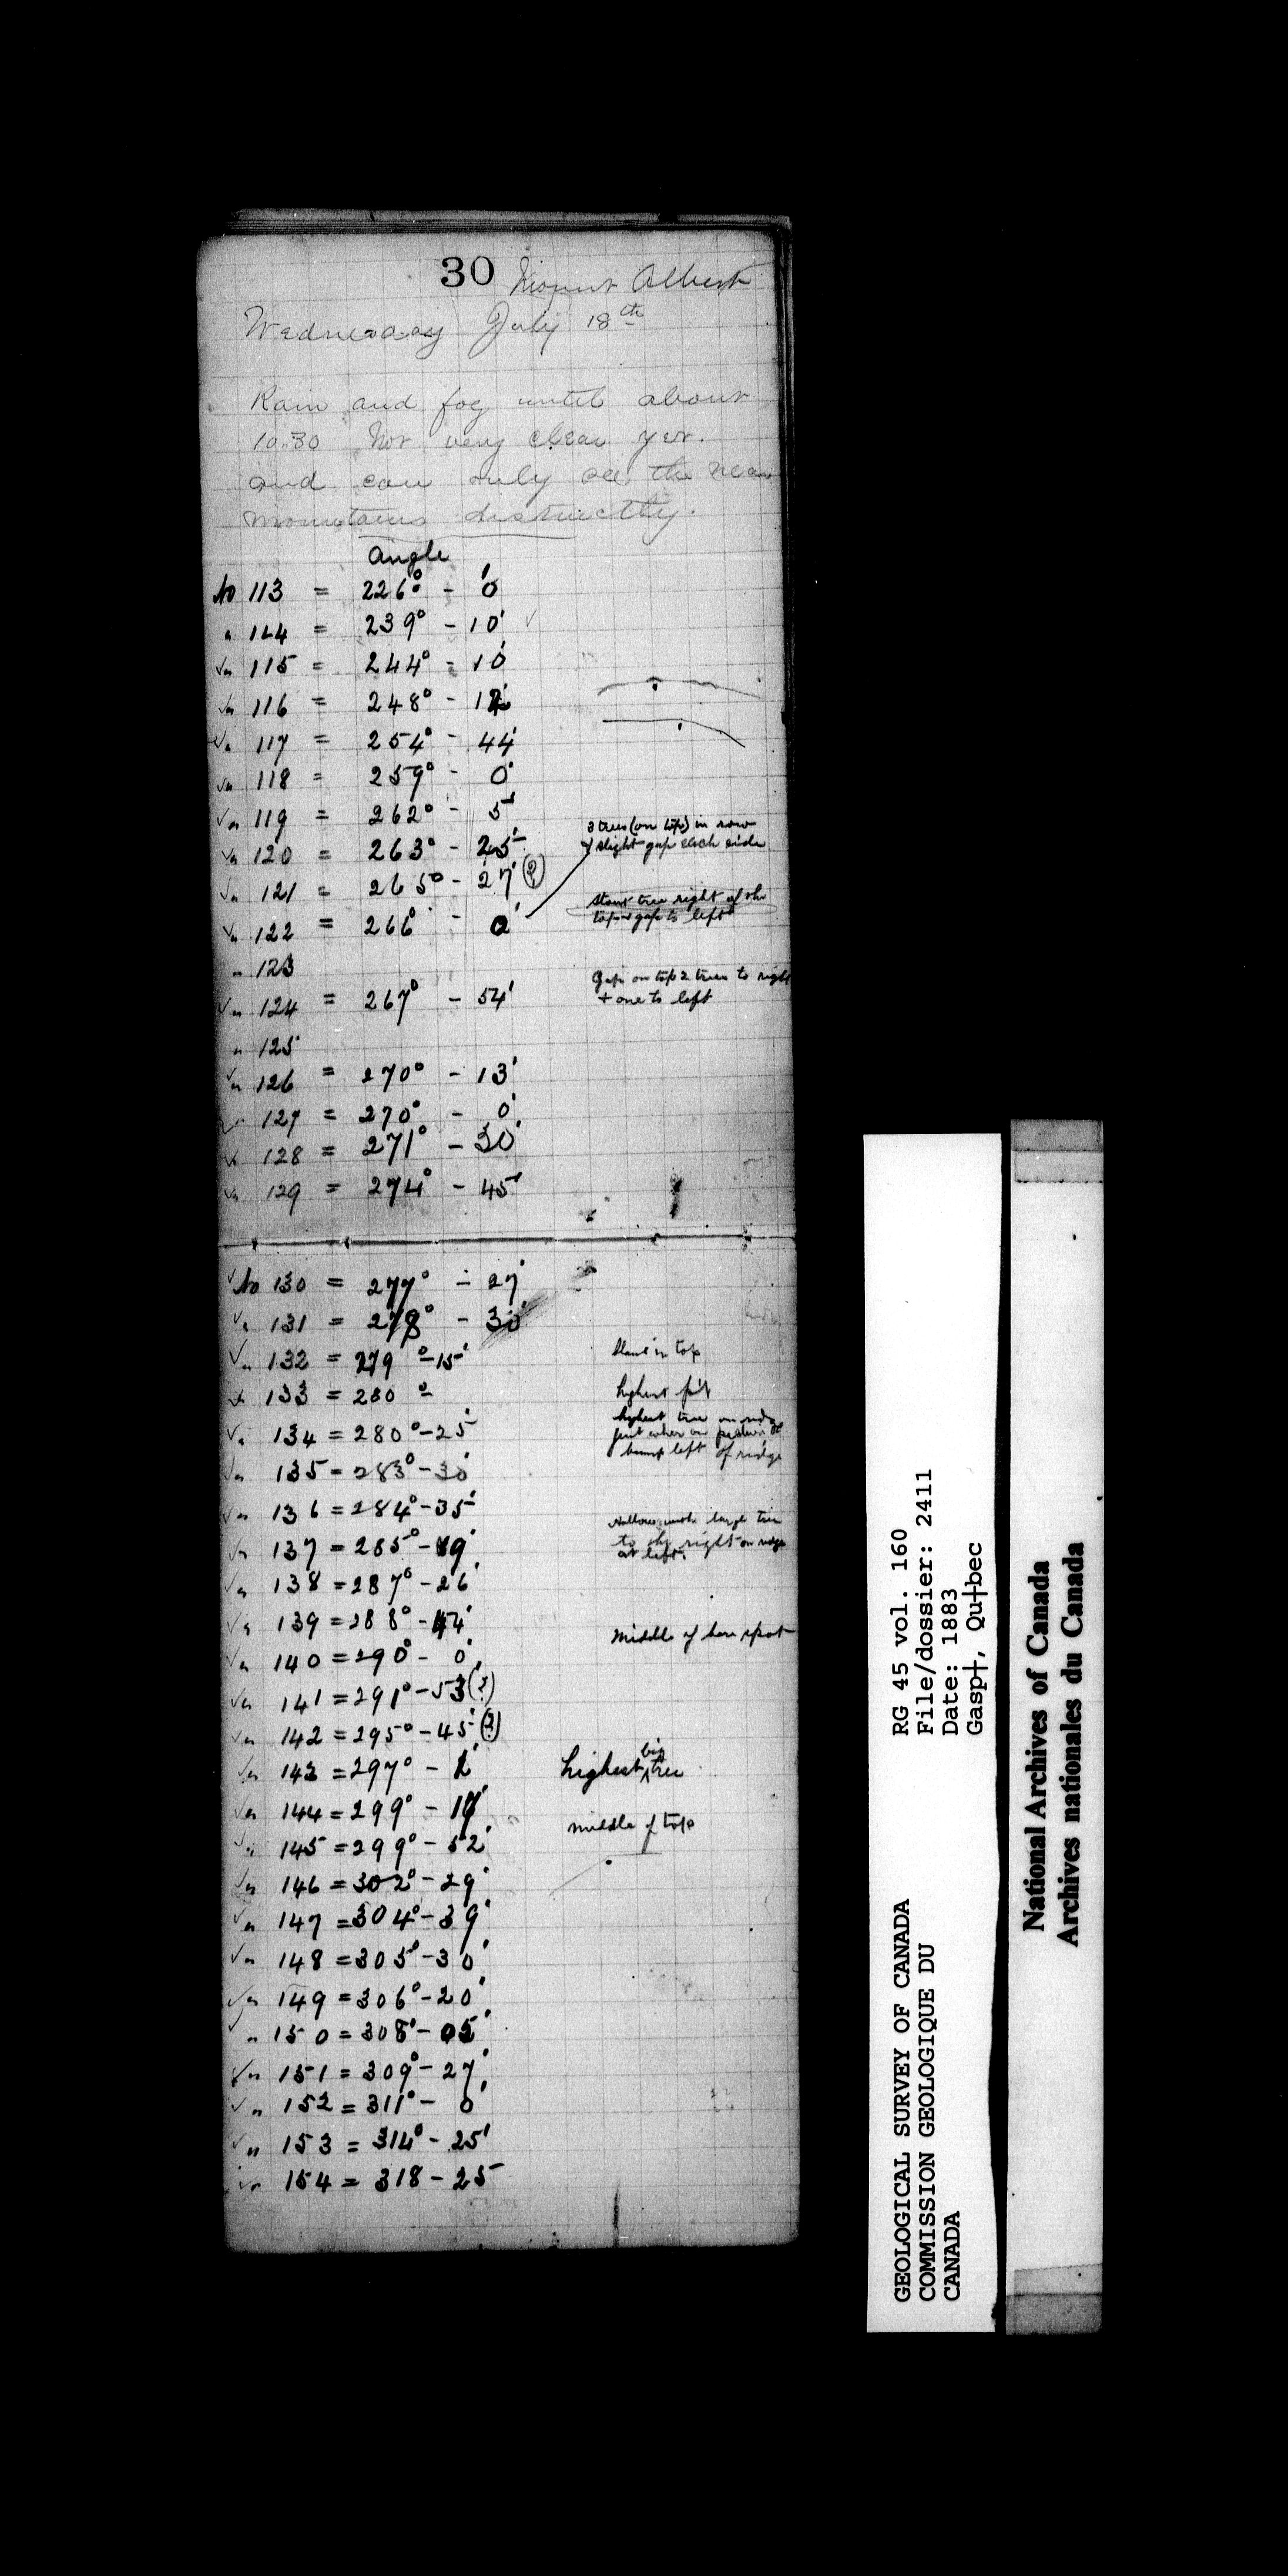 30 Mount Albert
Wednesday July 18th
Rain and fog until about
10.30 Not very clear yet.
and can only see the near
mountains distinctly.
Angle
No 113 = 226° - 0'
" 114 = 239° - 10' ✓
✓ " 115 = 244° - 10'
✓ " 116 = 248° -
✓ " 117 = 254° - 44'
✓ " 118 = 259° - 0'
✓ " 119 = 262° - 5'
✓ " 120 = 263° - 25'
3 trees (on top) in row
& slight gap each side
✓ " 121 = 265° - 27' (?)
✓ " 122 = 266° - 0'
Stout tree right of the
top & gap to left
" 123
✓ " 124 = 267° - 54'
Gap on top 2 trees to right
+ one to left
" 125
✓ " 126 = 270° - 13'
✓ " 127 = 270° - 0'
✓ " 128 = 271° - 30'
✓ " 129 = 274° - 45'
✓ No 130 = 277° - 27'
✓ " 131 = 278° - 30'
✓ " 132 = 279° - 15' in top
✓ " 133 = 280° - highest pt
✓ " 134 = 280° - 25'
highest tree on ridge
just when on
hump left of ridge
✓ " 135 = 283° - 30'
✓ " 136 = 284° - 35'
✓ " 137 = 285° - 19'
Hollow with large tree
to right on ridge
at left.
✓ " 138 = 287° - 26'
✓ " 139 = 288° - 44'
✓ " 140 = 290° - 0' Middle of bare spot
✓ " 141 = 291° - 53' (?)
✓ " 142 = 295° - 45' (?)
✓ " 143 = 297° - highest big tree
✓ " 144 = 299° -
✓ " 145 = 299° - 52' middle of top
✓ " 146 = 302° - 29'
✓ " 147 = 304° - 39'
✓ " 148 = 305° - 30'
✓ " 149 = 306° - 20'
✓ " 150 = 308° - 05'
✓ " 151 = 309° - 27'
✓ " 152 = 311° - 0'
✓ " 153 = 314° - 25'
✓ " 154 = 318 - 25
GEOLOGICAL SURVEY OF CANADA
COMMISSION GEOLOGIQUE DU
CANADA
RG 45 vol. 160
File/dossier: 2411
Date: 1883
Gasp†, Qu†bec
National Archives of Canada
Archives nationales du Canada